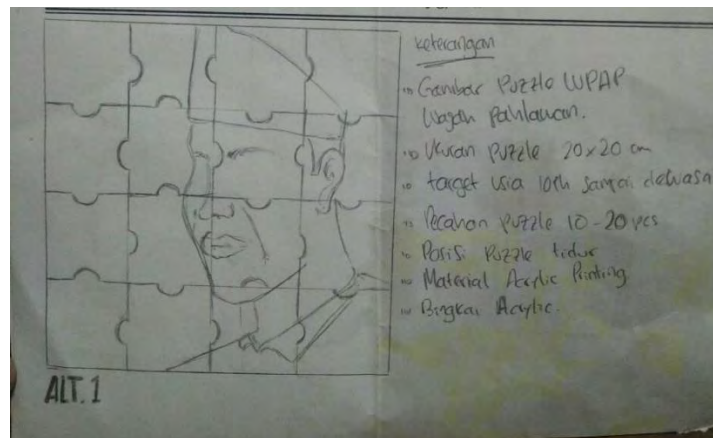 keterangan
Gambar Puzzle WPAP
Wajah Pahlawan.
Ukuran Puzzle 20x20 cm
target usia 10th sampai dewasa
Pecahan puzzle 10-20 pcs
Posisi Puzzle tidur
Material Acrylic Printing
Bingkai Acrylic.
ALT. 1